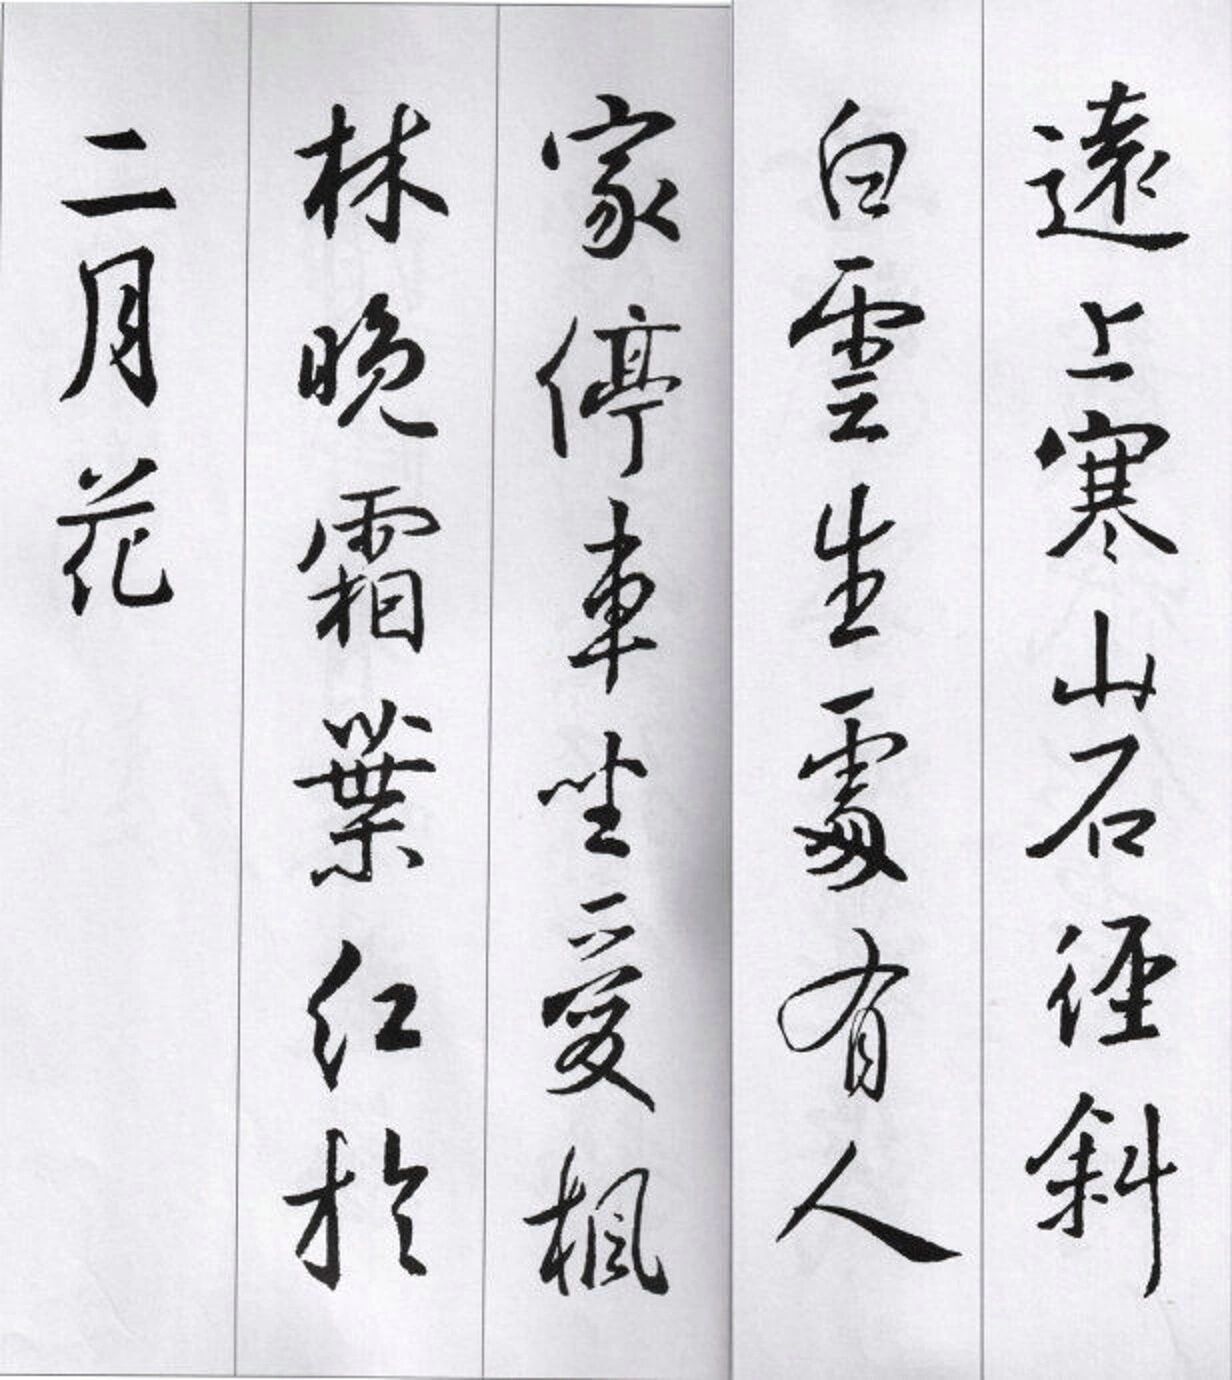 遠上寒山石徑斜
白雲生處有人
家停車坐愛楓
林晚霜葉红於
二月花